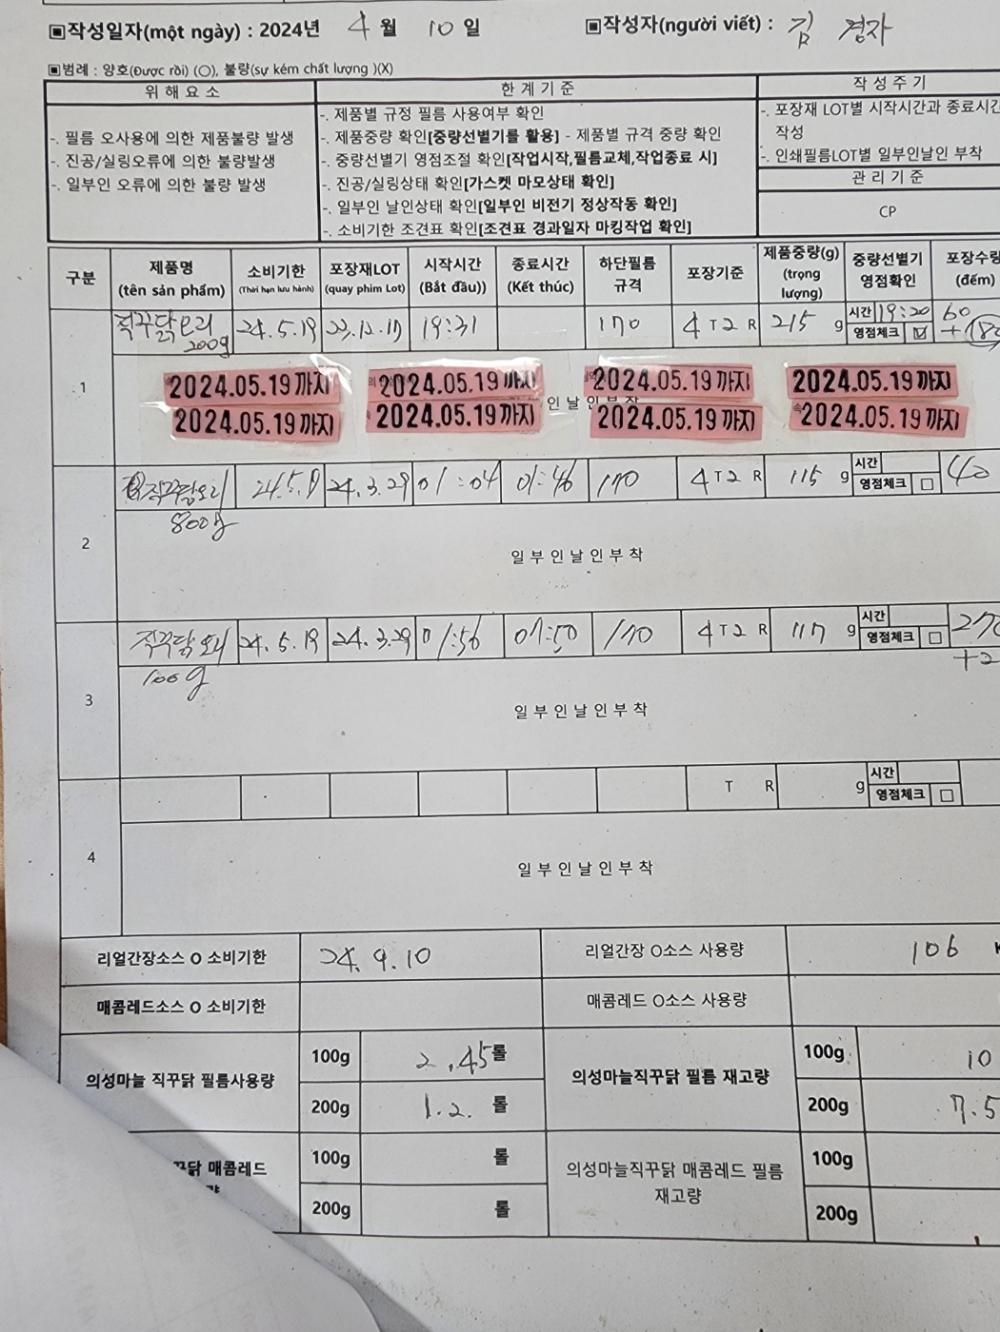 ▣작성일자(một ngày) : 2024년 4 월 10 일 ▣작성자(người viết) : 김 경자
▣범례 : 양호(Được rồi) (O), 불량(sự kém chất lượng )(X)
위 해 요 소
-. 필름 오사용에 의한 제품불량 발생
-. 진공/실링오류에 의한 불량발생
-. 일부인 오류에 의한 불량 발생
한 계 기 준
-. 제품별 규정 필름 사용여부 확인
-. 제품중량 확인[중량선별기를 활용] - 제품별 규격 중량 확인
-. 중량선별기 영점조절 확인[작업시작,필름교체,작업종료 시]
-. 진공/실링상태 확인[가스켓 마모상태 확인]
-. 일부인 날인상태 확인[일부인 비전기 정상작동 확인]
-. 소비기한 조견표 확인[조견표 경과일자 마킹작업 확인]
작 성 주 기
-. 포장재 LOT별 시작시간과 종료시간
작성
-. 인쇄필름LOT별 일부인날인 부착
관 리 기 준
CP
구분 제품명 소비기한 포장재LOT 시작시간 종료시간 하단필름 포장기준 제품중량(g) 중량선별기 포장수량
(tên sản phẩm) (Thời hạn lưu hành) (quay phim Lot) (Bắt đầu)) (Kết thúc) 규격 (trọng lượng) 영점확인 (đếm)
1 직꾸닭오리 200g 24.5.19 23.12.17 19:31 170 4 T 2 R 215 g 시간 19:20 영점체크 ☑ 60
2024.05.19까지 2024.05.19까지 2024.05.19까지 2024.05.19까지
2024.05.19까지 2024.05.19까지 2024.05.19까지 2024.05.19까지
2 24.5.19 24.3.29 01:04 01:46 170 4 T 2 R 115 g 시간 영점체크 □ 40
일 부 인 날 인 부 착
3 24.5.19 24.3.29 170 4 T 2 R 117 g 시간 영점체크 □ 270
100g
일 부 인 날 인 부 착
4 T R g 시간 영점체크 □
일 부 인 날 인 부 착
리얼간장소스 O 소비기한 24.9.10 리얼간장 O소스 사용량 106
매콤레드소스 O 소비기한 매콤레드 O소스 사용량
의성마늘 직꾸닭 필름사용량 100g 2.45 롤 의성마늘직꾸닭 필름 재고량 100g 10
200g 1.2. 롤 200g 7.5
꾸닭 매콤레드 100g 롤 의성마늘직꾸닭 매콤레드 필름 재고량 100g
200g 롤 200g